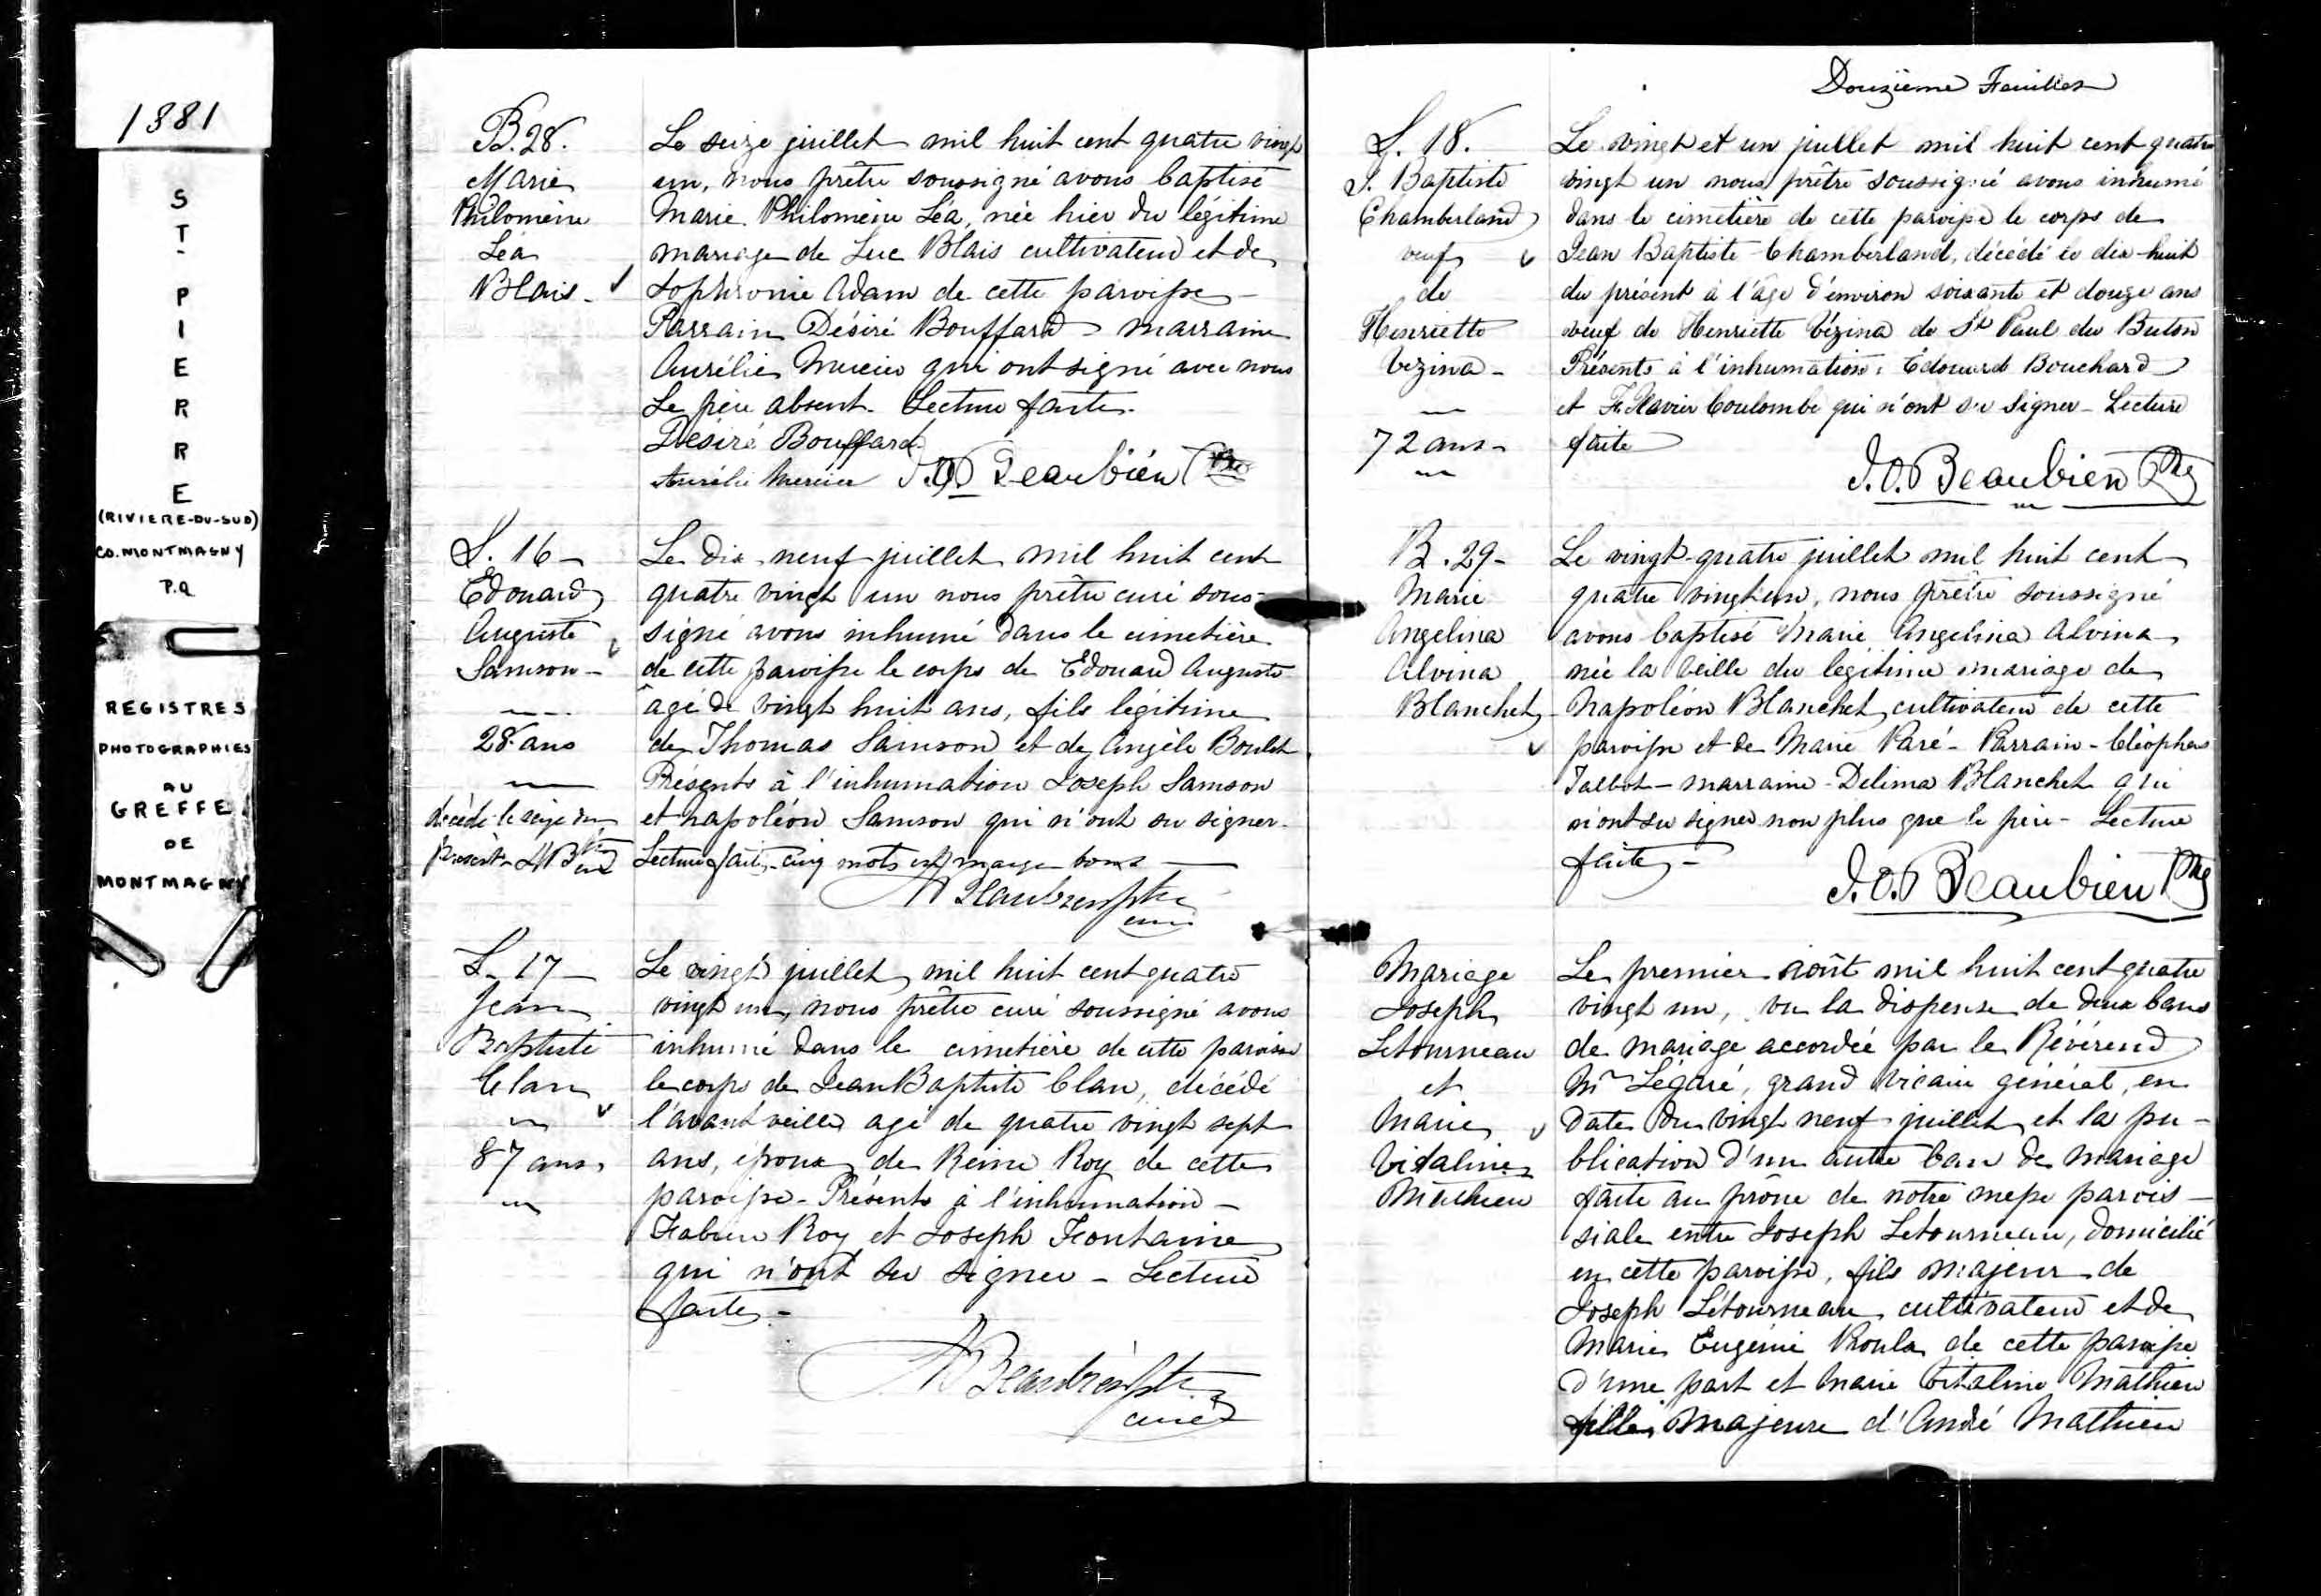 1881
S
T
P
I
E
R
R
E
(RIVIERE-DU-SUD)
CO. MONTMAGNY
P.Q
REGISTRES
PHOTOGRAPHIES
AU
GREFFE
DE
MONTMAGNY
B. 28.
Marie
Philomène
Léa
Blais -
Le seize juillet mil huit cent quatre vingt
un, nous prêtre soussigné avons baptisé
Marie Philomène Léa, née hier du légitime
mariage de Luc Blais cultivateur et de
Sophronie Adam de cette paroisse -
Parrain Désiré Bouffard marraine
Aurélie Mercier qui ont signé avec nous
Le père absent. Lecture faite.
Désiré Bouffard
Aurélie Mercier J.O. Beaubien Ptre
S. 16 -
Edouard
Auguste
Samson -
28 ans
décédé le seize du
présent
Le dix neuf juillet mil huit cent
quatre vingt un nous prêtre curé sous-
signé avons inhumé dans le cimetière
de cette paroisse le corps de Edouard Auguste
âgé de vingt huit ans, fils légitime
de Thomas Samson et de Angèle Boulet
Présents à l'inhumation Joseph Samson
et Napoléon Samson qui n'ont su signer.
Lecture faite, cinq mots en marge bons
Beaubien ptre
curé
S. 17 -
Jean
Baptiste
Clan
87 ans
Le vingt juillet mil huit cent quatre
vingt un, nous prêtre curé soussigné avons
inhumé dans le cimetière de cette paroisse
le corps de Jean Baptiste Clan, décédé
l'avant veille agé de quatre vingt sept
ans, époux de Reine Roy de cette
paroisse - Présents à l'inhumation -
Fabien Roy et Joseph Fontaine
qui n'ont su signer - Lecture
faite -
Beaubien ptre
curé
Douzième Feuillet
S. 18.
J. Baptiste
Chamberland
veuf
de
Henriette
Vézina -
72 ans -
Le vingt et un juillet mil huit cent quatre
vingt un nous prêtre soussigné avons inhumé
dans le cimetière de cette paroisse le corps de
Jean Baptiste Chamberland, décédé le dix-huit
du présent à l'âge d'environ soixante et douze ans
veuf de Henriette Vézina de St Paul du Buton
Présents à l'inhumation: Edouard Bouchard
et F. Xavier Coulombe qui n'ont su signer - Lecture
faite
J.O. Beaubien Ptre
B. 29 -
Marie
Angelina
Alvina
Blanchet
Le vingt-quatre juillet mil huit cent
quatre vingt un, nous prêtre soussigné
avons baptisé Marie Angelina Alvina
née la veille du légitime mariage de
Napoléon Blanchet, cultivateur de cette
paroisse et de Marie Paré - Parrain - Cléophas
Talbot - marraine - Delima Blanchet qui
n'ont su signer non plus que le père - Lecture
faite -
J.O. Beaubien Ptre
Mariage
Joseph
Letourneau
et
Marie
Vitaline
Mathieu
Le premier août mil huit cent quatre
vingt un, vu la dispense de deux bans
de mariage accordée par le Révérend
Mr Légaré, grand vicaire général, en
date du vingt neuf juillet et la pu-
blication d'un autre ban de mariage
faite au prône de notre messe parois-
siale entre Joseph Letourneau, domicilié
en cette paroisse, fils majeur de
Joseph Létourneau cultivateur et de
Marie Eugénie de cette paroisse
d'une part et Marie Vitaline Mathieu
fille majeure d'André Mathieu